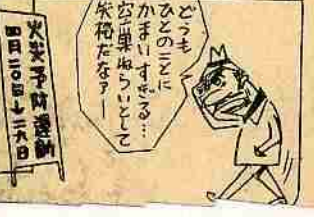 どうも
ひとのことに
かまいすぎる…
空巣ねらいとして
失格だなァー
火災予防運動
四月二〇日→二六日